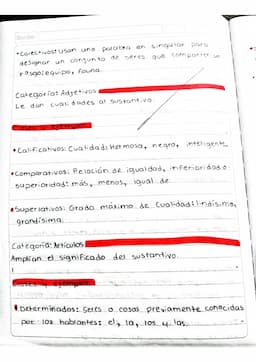 • Colectivos: Usan una palabra en singular para
designar un conjunto de seres que comparten un
rasgo: equipo, fauna.
Categoría: Adjetivos
Le dan cualidades al sustantivo.
• Calificativos: Cualidad: Hermosa, negro, inteligente
• Comparativos: Relación de igualdad, inferioridad o
superioridad: más, menos, igual de
• Superlativos: Grado máximo de cualidad: lindísimo,
grandísima.
Categoría: Artículos
Amplían el significado del sustantivo.
Clases y ejemplos
• Determinados: Seres o cosas previamente conocidas
por los hablantes: el, la, los y las.